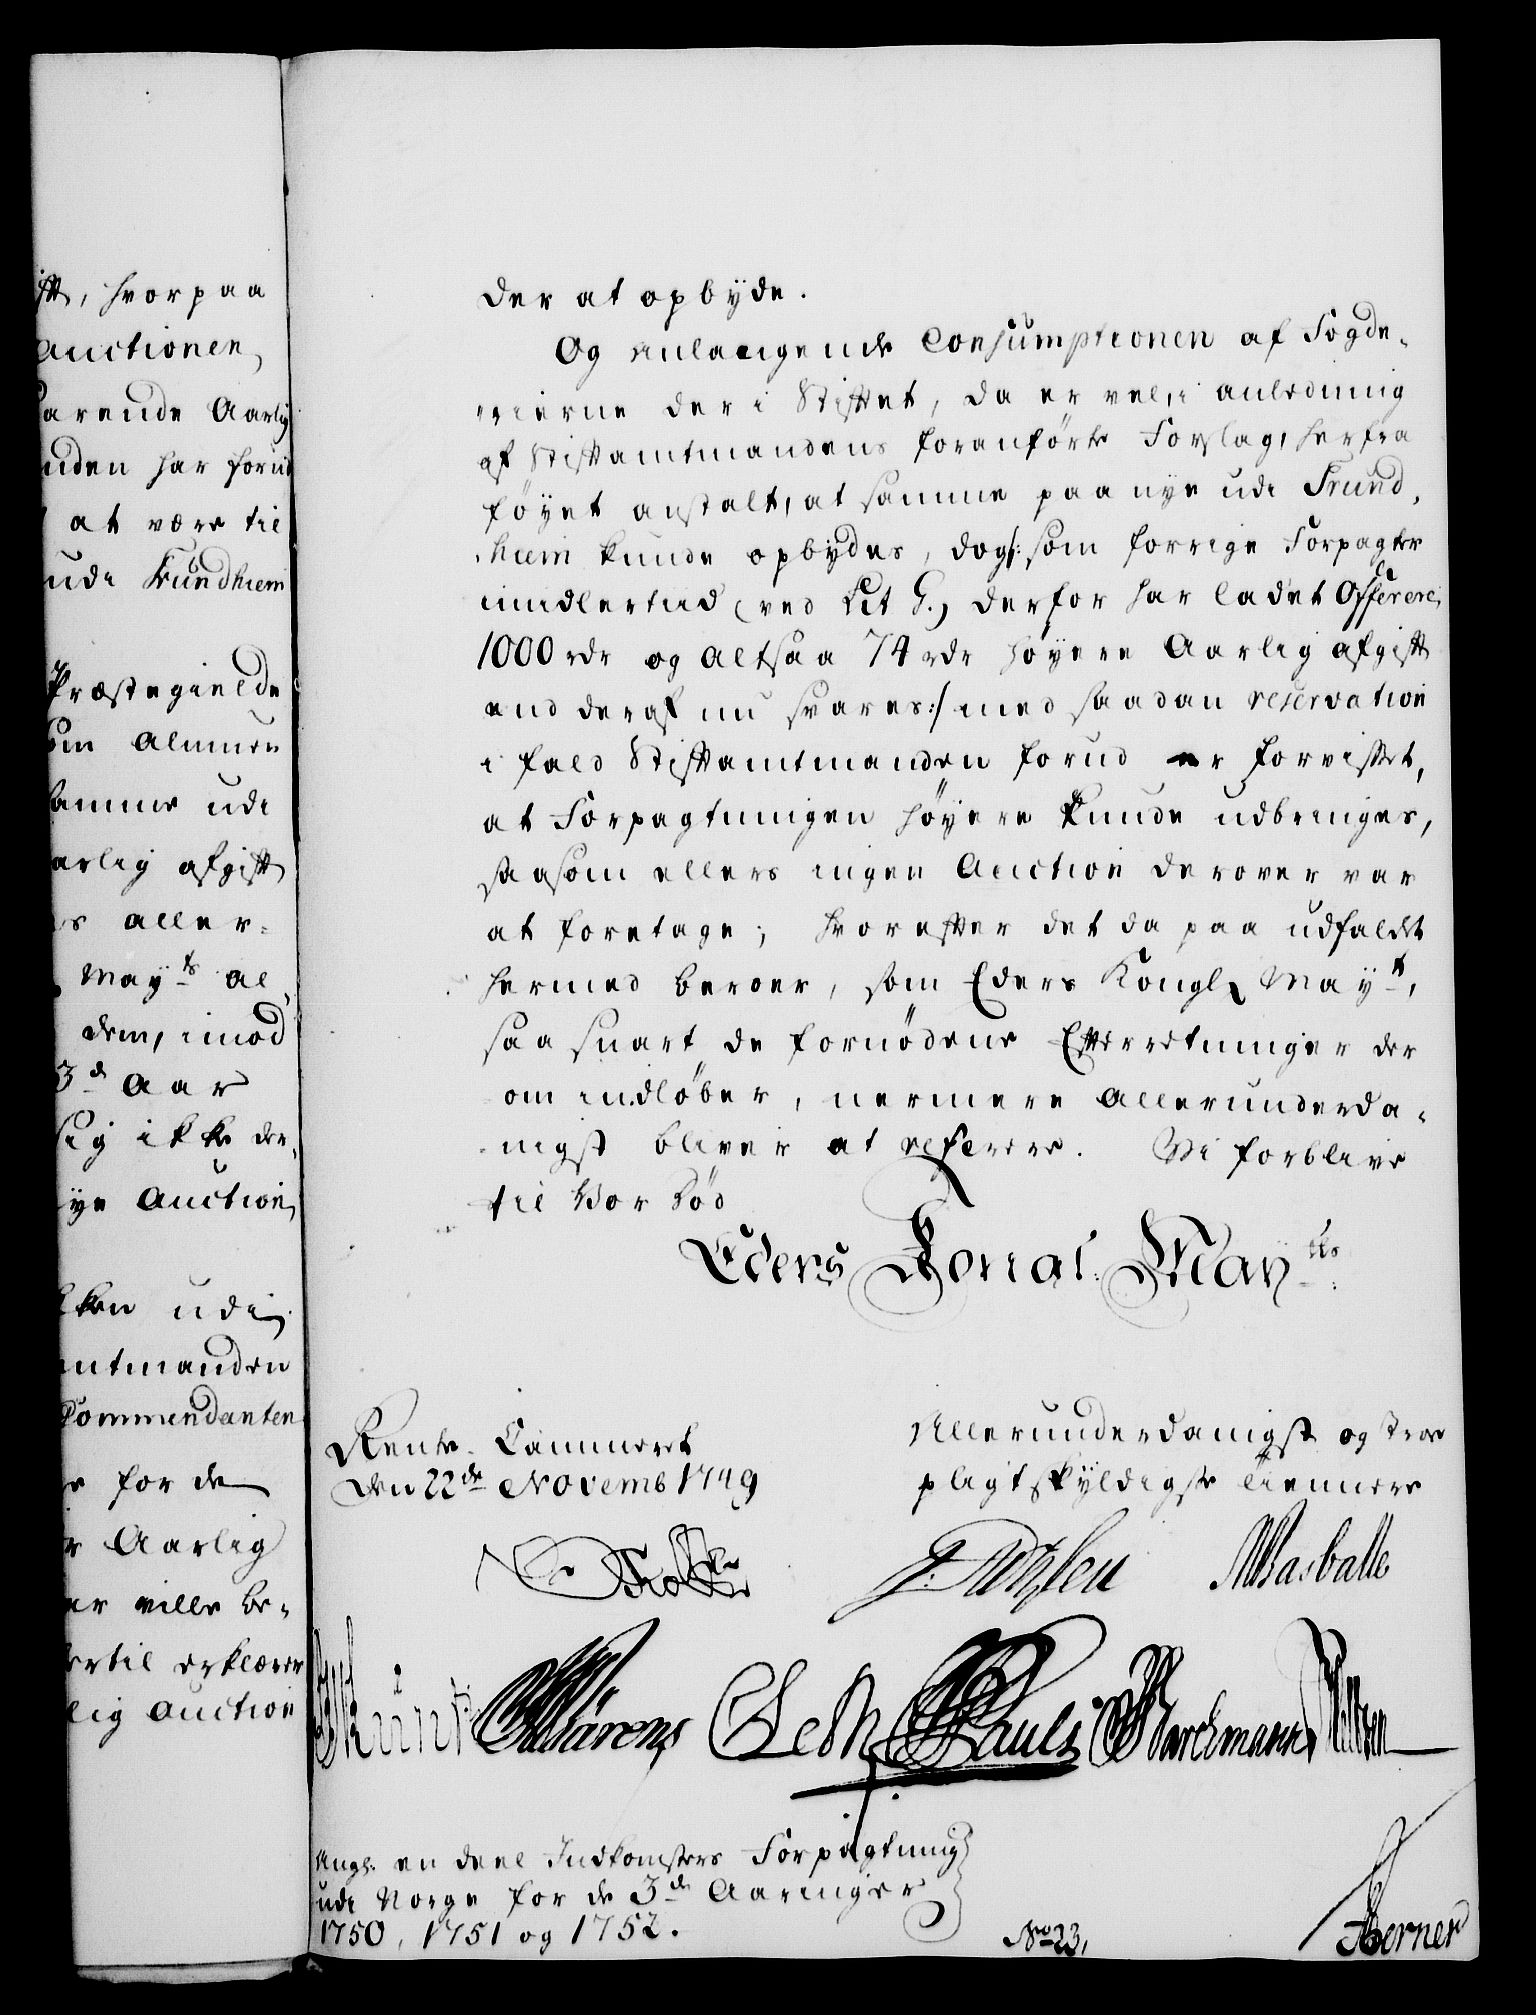 ft, hvorpaa
Auctionen,
arende Aarlig
nden har forud
at være til
udi Trundhiem
Præsteginelde
om Almuen
samme udi
arlig afgift
s aller-
Mayts al
dem, imod
3de Aar
sig ikke der-
ye Auction,
kken udi
amtmanden
Commendanten
e for de
r Aarlig
ar ville be-
ertil erklærer
lig Auction
der at opbyde.
Og anlangende Consumptionen af Fogde-
rierne der i Stiftet, da er vel, i anledning
af Stiftamtmandens foranførte Forslag, herfra
føyet anstalt, at samme paa nye udi Trund-
hiem kunde opbydes, dog /: som forrige Forpagter
imidlertiid (ved Lit G.) derfor har ladet Offerere
1000 rdr og altsaa 74 rdr høyere Aarlig afgift
end deraf nu svares :/ med saadan reservation
i fald Stiftamtmanden forud er forvisset,
at Forpagtningen høyere kunde udbringes,
saasom ellers ingen Auction derover var
at foretage; hvorefter det da paa udfaldet
hermed beroer, som Eders Kongl Mayt,
saa snart de fornødene Efterretninger der
om indløber, nermere allerunderda-
nigst bliver at referere. Vi forblive
til Vor Død
Eders Kongl: Mayts
Rente-Cammeret
den 22de Novemb 1749
Allerunderdanigst og troe
pligtskyldigste Tiennere
Masballe
Leth Pauli
Angl: en deel Indkomsters Forpagtning
udi Norge for de 3de Aaringer
1750, 1751 og 1752.
No 23,
Berner